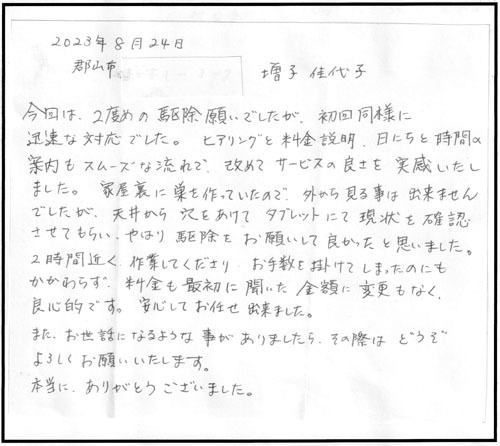 2023年8月24日
郡山市
増子 佳代子
今回は、2度めの駆除願いでしたが、初回同様に
迅速な対応でした。 ヒアリングと料金説明、日にちと時間の
案内もスムーズな流れで、改めてサービスの良さを実感いたし
ました。 家屋裏に巣を作っていたので、外から見る事は出来ません
でしたが、天井から穴をあけてタブレットにて現状を確認
させてもらい、やはり駆除をお願いして良かったと思いました。
2時間近く、作業してくださり、お手数を掛けてしまったのにも
かかわらず、料金も最初に聞いた金額に変更もなく、
良心的です。 安心してお任せ出来ました。
また、お世話になるような事がありましたら、その際はどうぞ
よろしくお願いいたします。
本当に、ありがとうございました。